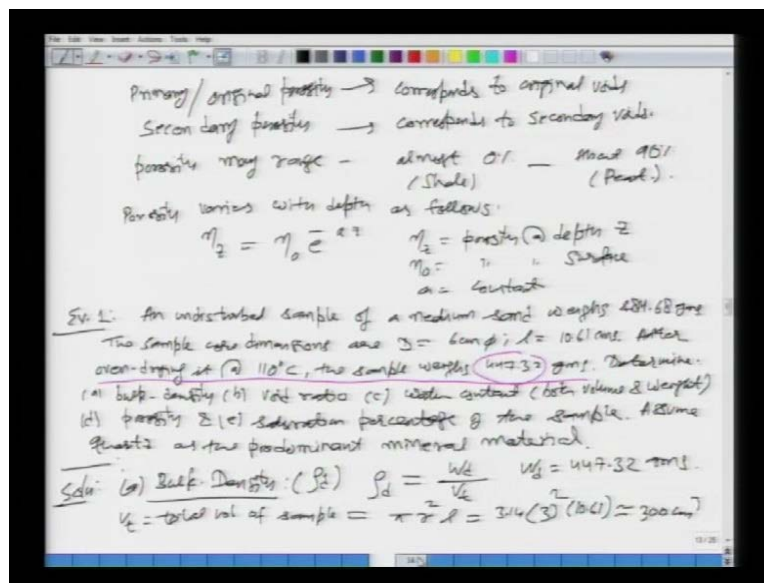 File Edit View Insert Actions Tools Help
Primary/original porosity → corresponds to original voids
Secondary porosity → corresponds to secondary voids.
porosity may range - almost 0% — almost 90%
(Shale) (Peat.).
Porosity varies with depth as follows.
η_z = η_o e^-az η_z = porosity @ depth z
η_o = " " surface
a = constant
Ex. 1: An undisturbed sample of a medium sand weighs 484.68 gms
The sample core dimensions are D = 6cm φ; l = 10.61 cms. After
oven-drying it @ 110°C, the sample weighs 447.32 gms. Determine.
(a) bulk-density (b) void ratio (c) water content (both volume & weight)
(d) porosity & (e) saturation percentage of the sample. Assume
quartz as the predominant mineral material.
Soln: (a) Bulk-Density: (ρd) ρd = Wd/Vt Wd = 447.32 gms.
Vt = total vol of sample = πr²l = 3.14(3)²(10.61) ≈ 300cm³